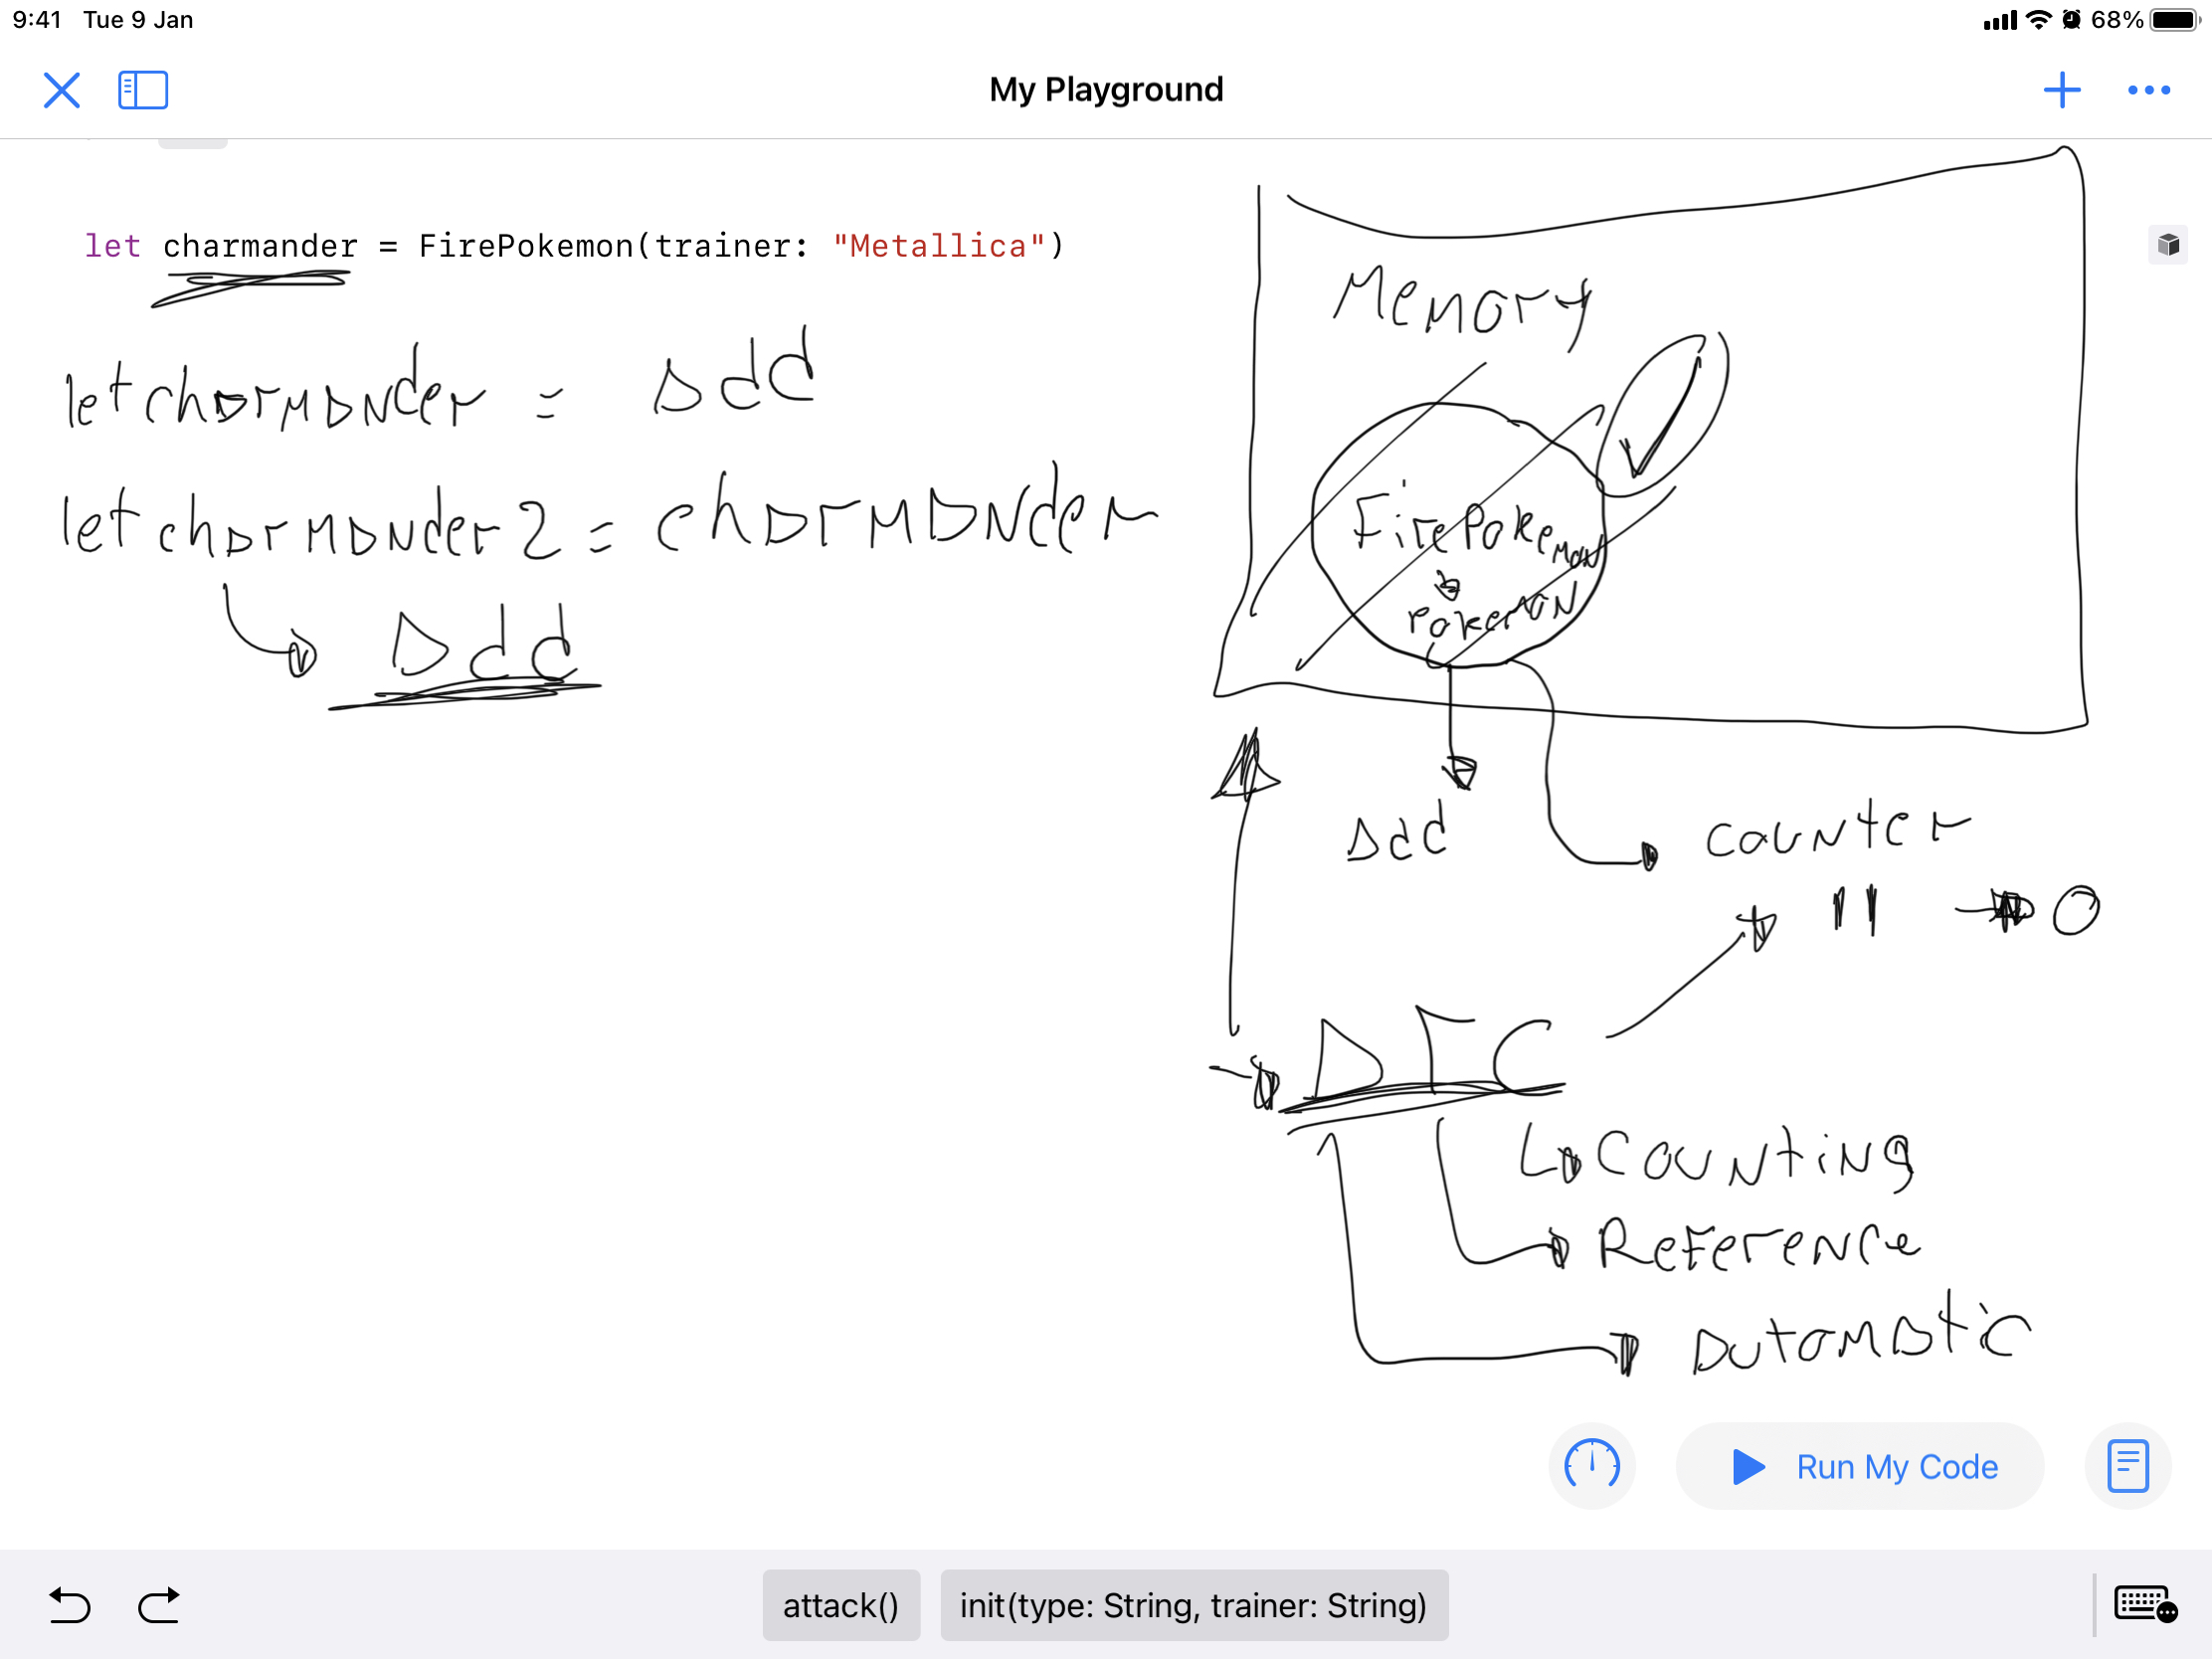 9:41 Tue 9 Jan
68%
My Playground
let charmander = FirePokemon(trainer: "Metallica")
let charmander = add
let charmander2 = charmander
add
Memory
FirePokemon
Pokemon
add
counter
11 0
arc
Counting
Reference
automatic
Run My Code
attack()
init(type: String, trainer: String)